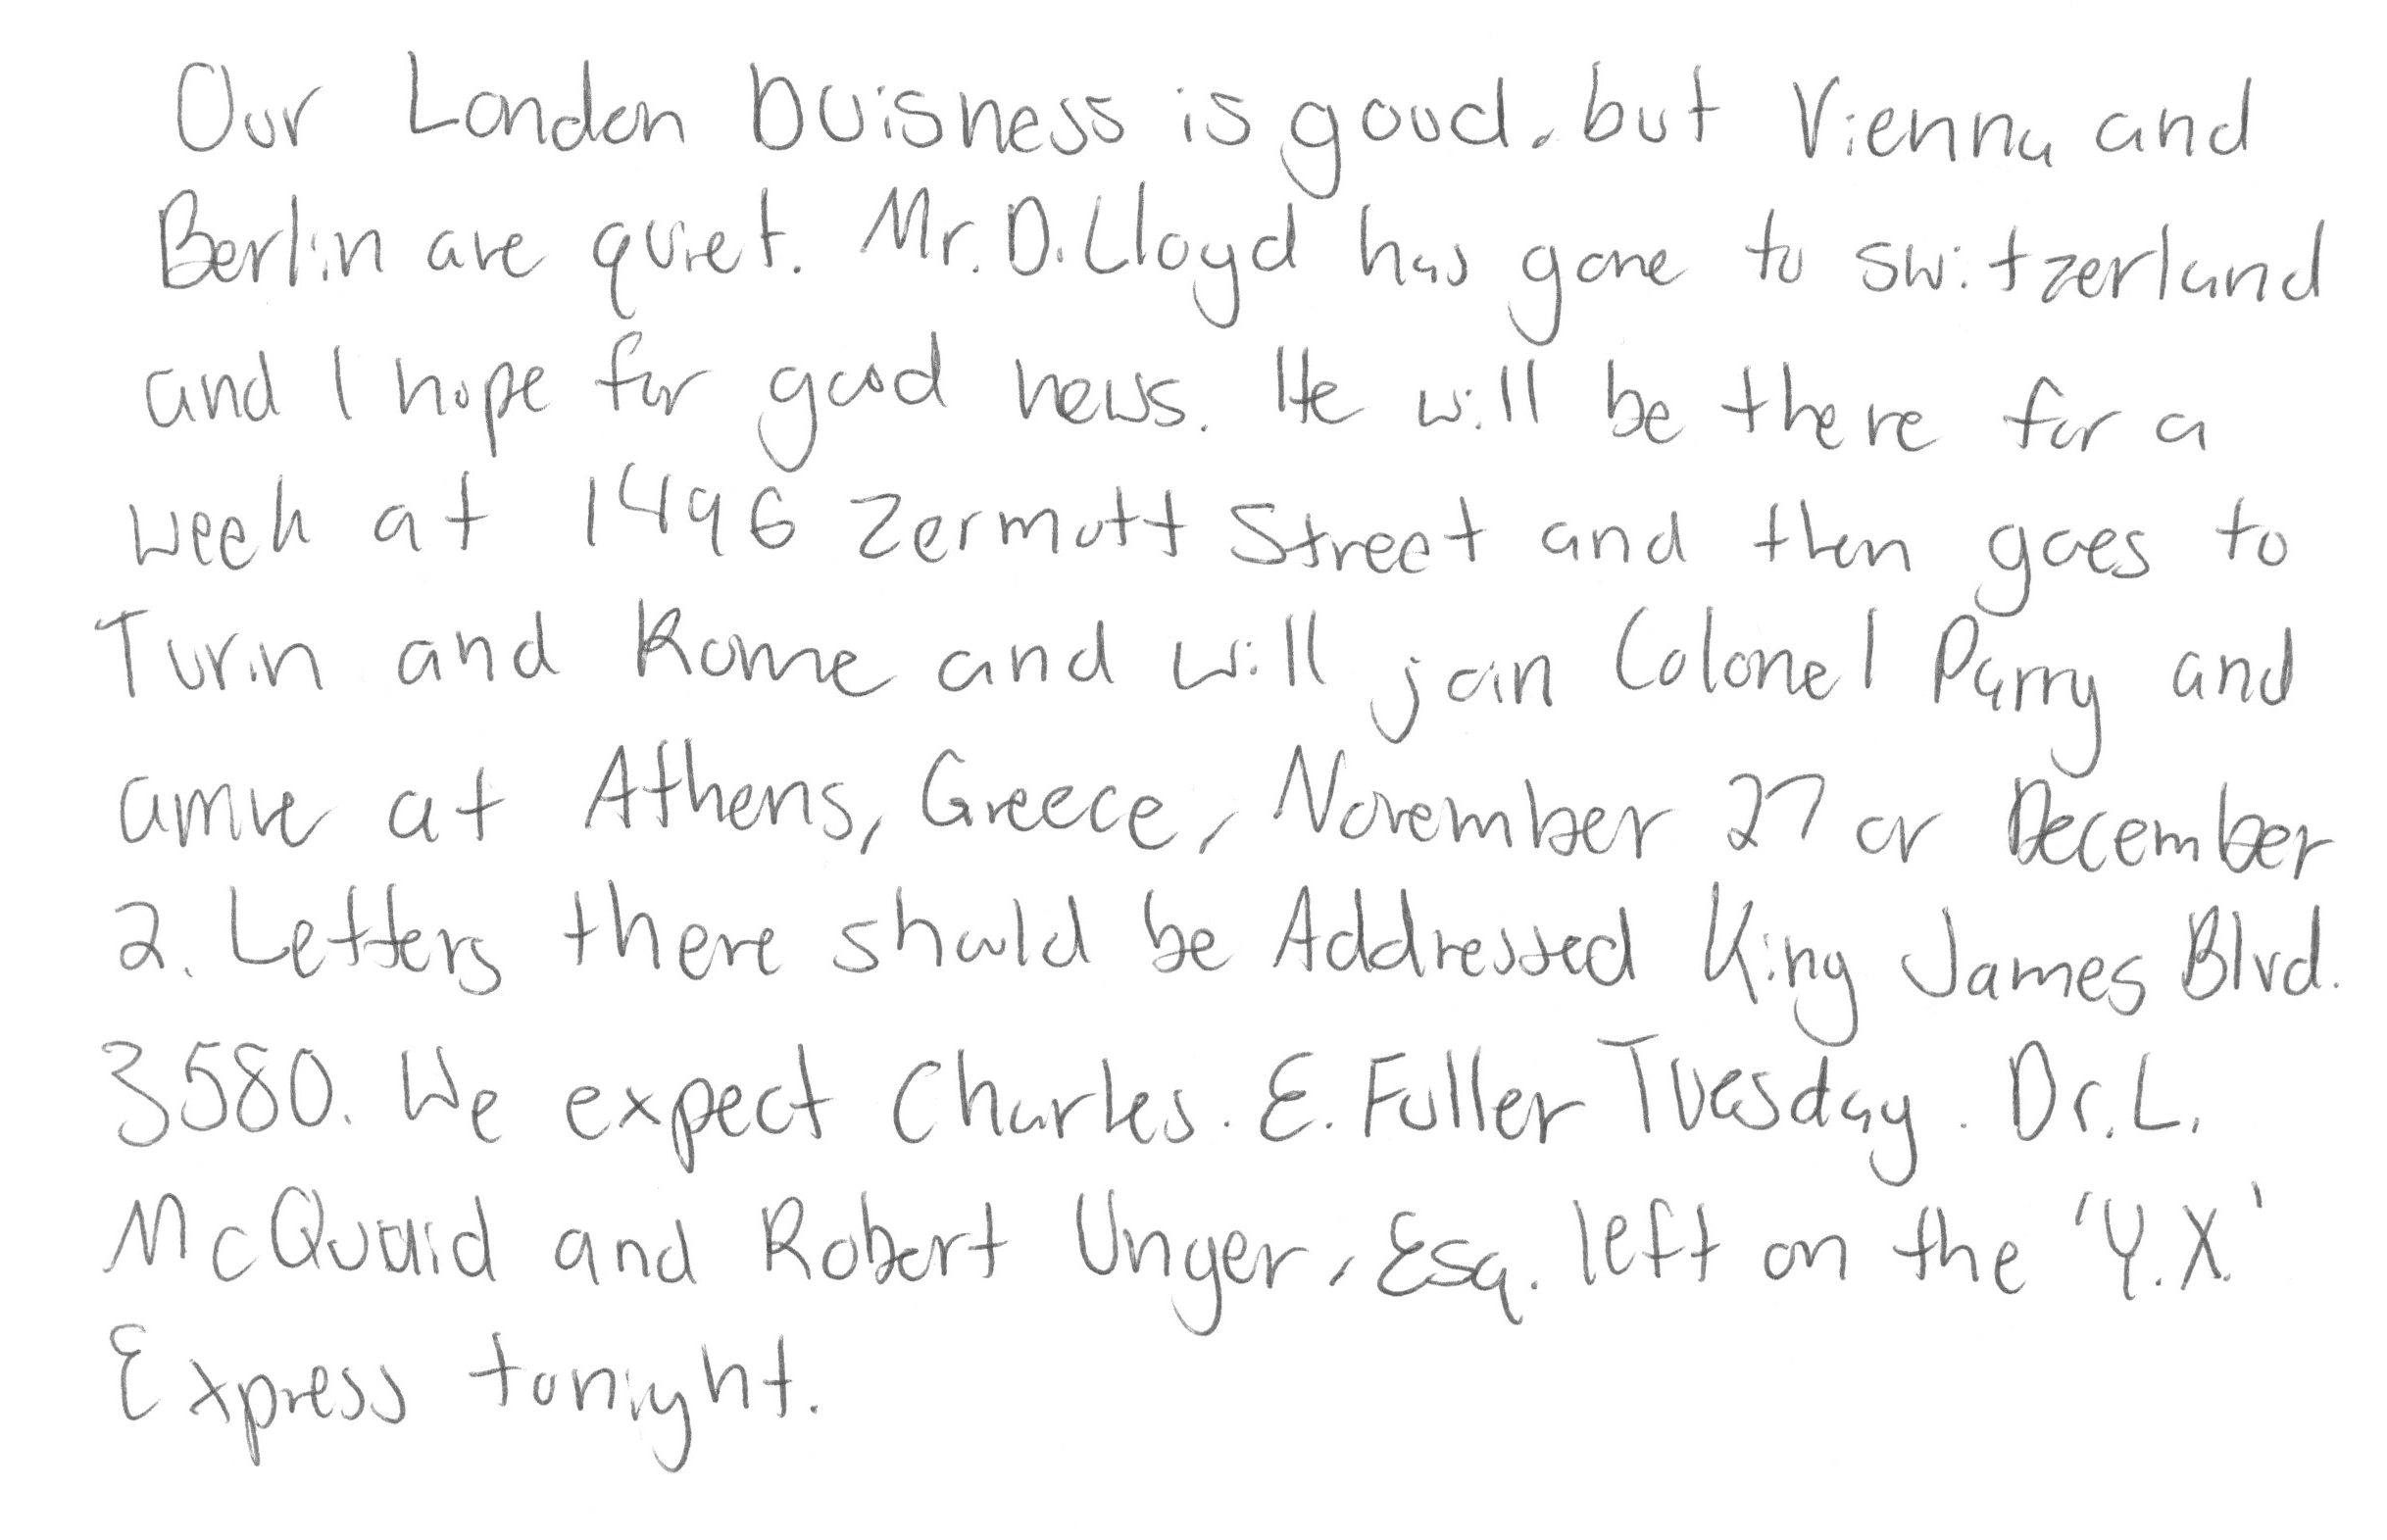 Our London buisness is good, but Vienna and
Berlin are quiet. Mr. D. Lloyd has gone to switzerland
and I hope for good news. He will be there for a
week at 1496 Zermott Street and then goes to
Turin and Rome and will join Colonel Parry and
arrive at Athens, Greece, November 27 or December
2. Letters there should be Addressed King James Blvd.
3580. We expect Charles. E. Fuller Tuesday. Dr. L.
McQuaid and Robert Unger, Esq. left on the 'Y.X.'
Express tonight.